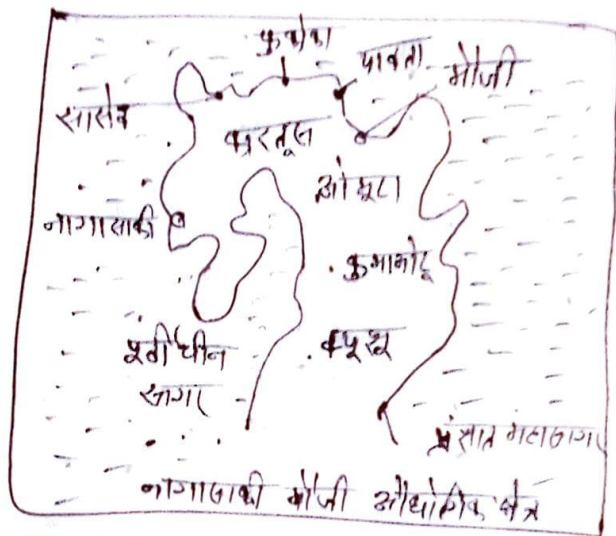 फुकोका
यावता
मौजी
सासेब
करतूस
ओमूटा
नागासाकी
कुमामोटू
पूर्वी चीन
सागर
क्यूशू
प्रशांत महासागर
नागासाकी मौजी औद्योगिक क्षेत्र